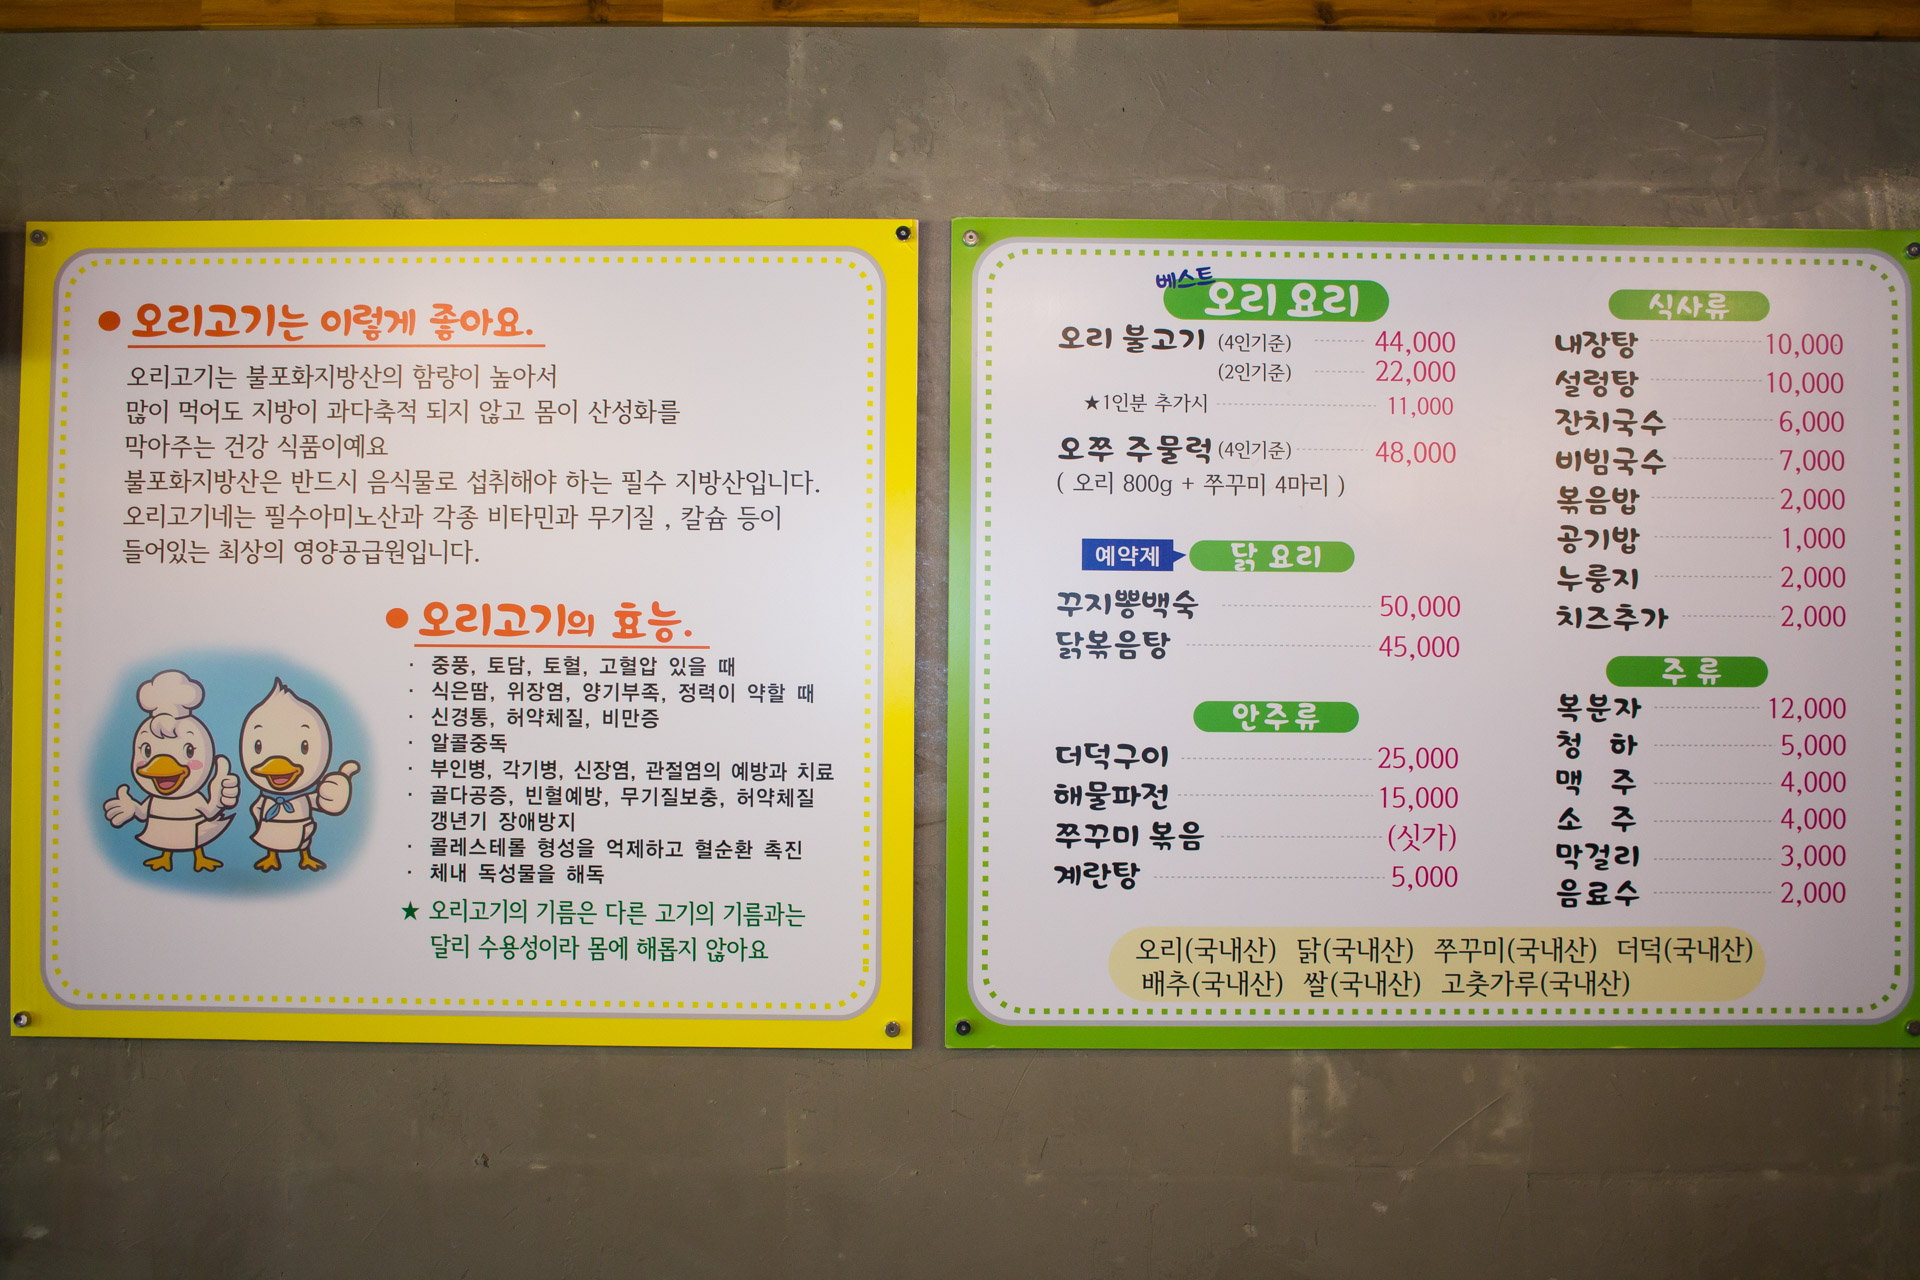 ● 오리고기는 이렇게 좋아요.
오리고기는 불포화지방산의 함량이 높아서
많이 먹어도 지방이 과다축적 되지 않고 몸이 산성화를
막아주는 건강 식품이예요
불포화지방산은 반드시 음식물로 섭취해야 하는 필수 지방산입니다.
오리고기네는 필수아미노산과 각종 비타민과 무기질 , 칼슘 등이
들어있는 최상의 영양공급원입니다.
● 오리고기의 효능.
· 중풍, 토담, 토혈, 고혈압 있을 때
· 식은땀, 위장염, 양기부족, 정력이 약할 때
· 신경통, 허약체질, 비만증
· 알콜중독
· 부인병, 각기병, 신장염, 관절염의 예방과 치료
· 골다공증, 빈혈예방, 무기질보충, 허약체질
갱년기 장애방지
· 콜레스테롤 형성을 억제하고 혈순환 촉진
· 체내 독성물을 해독
★ 오리고기의 기름은 다른 고기의 기름과는
달리 수용성이라 몸에 해롭지 않아요
베스트
오리 요리
오리 불고기 (4인기준) 44,000
(2인기준) 22,000
★1인분 추가시 11,000
오쭈 주물럭 (4인기준) 48,000
( 오리 800g + 쭈꾸미 4마리 )
예약제 닭 요리
꾸지뽕백숙 50,000
닭볶음탕 45,000
안주류
더덕구이 25,000
해물파전 15,000
쭈꾸미 볶음 (싯가)
계란탕 5,000
식사류
내장탕 10,000
설렁탕 10,000
잔치국수 6,000
비빔국수 7,000
볶음밥 2,000
공기밥 1,000
누룽지 2,000
치즈추가 2,000
주 류
복분자 12,000
청 하 5,000
맥 주 4,000
소 주 4,000
막걸리 3,000
음료수 2,000
오리(국내산) 닭(국내산) 쭈꾸미(국내산) 더덕(국내산)
배추(국내산) 쌀(국내산) 고춧가루(국내산)